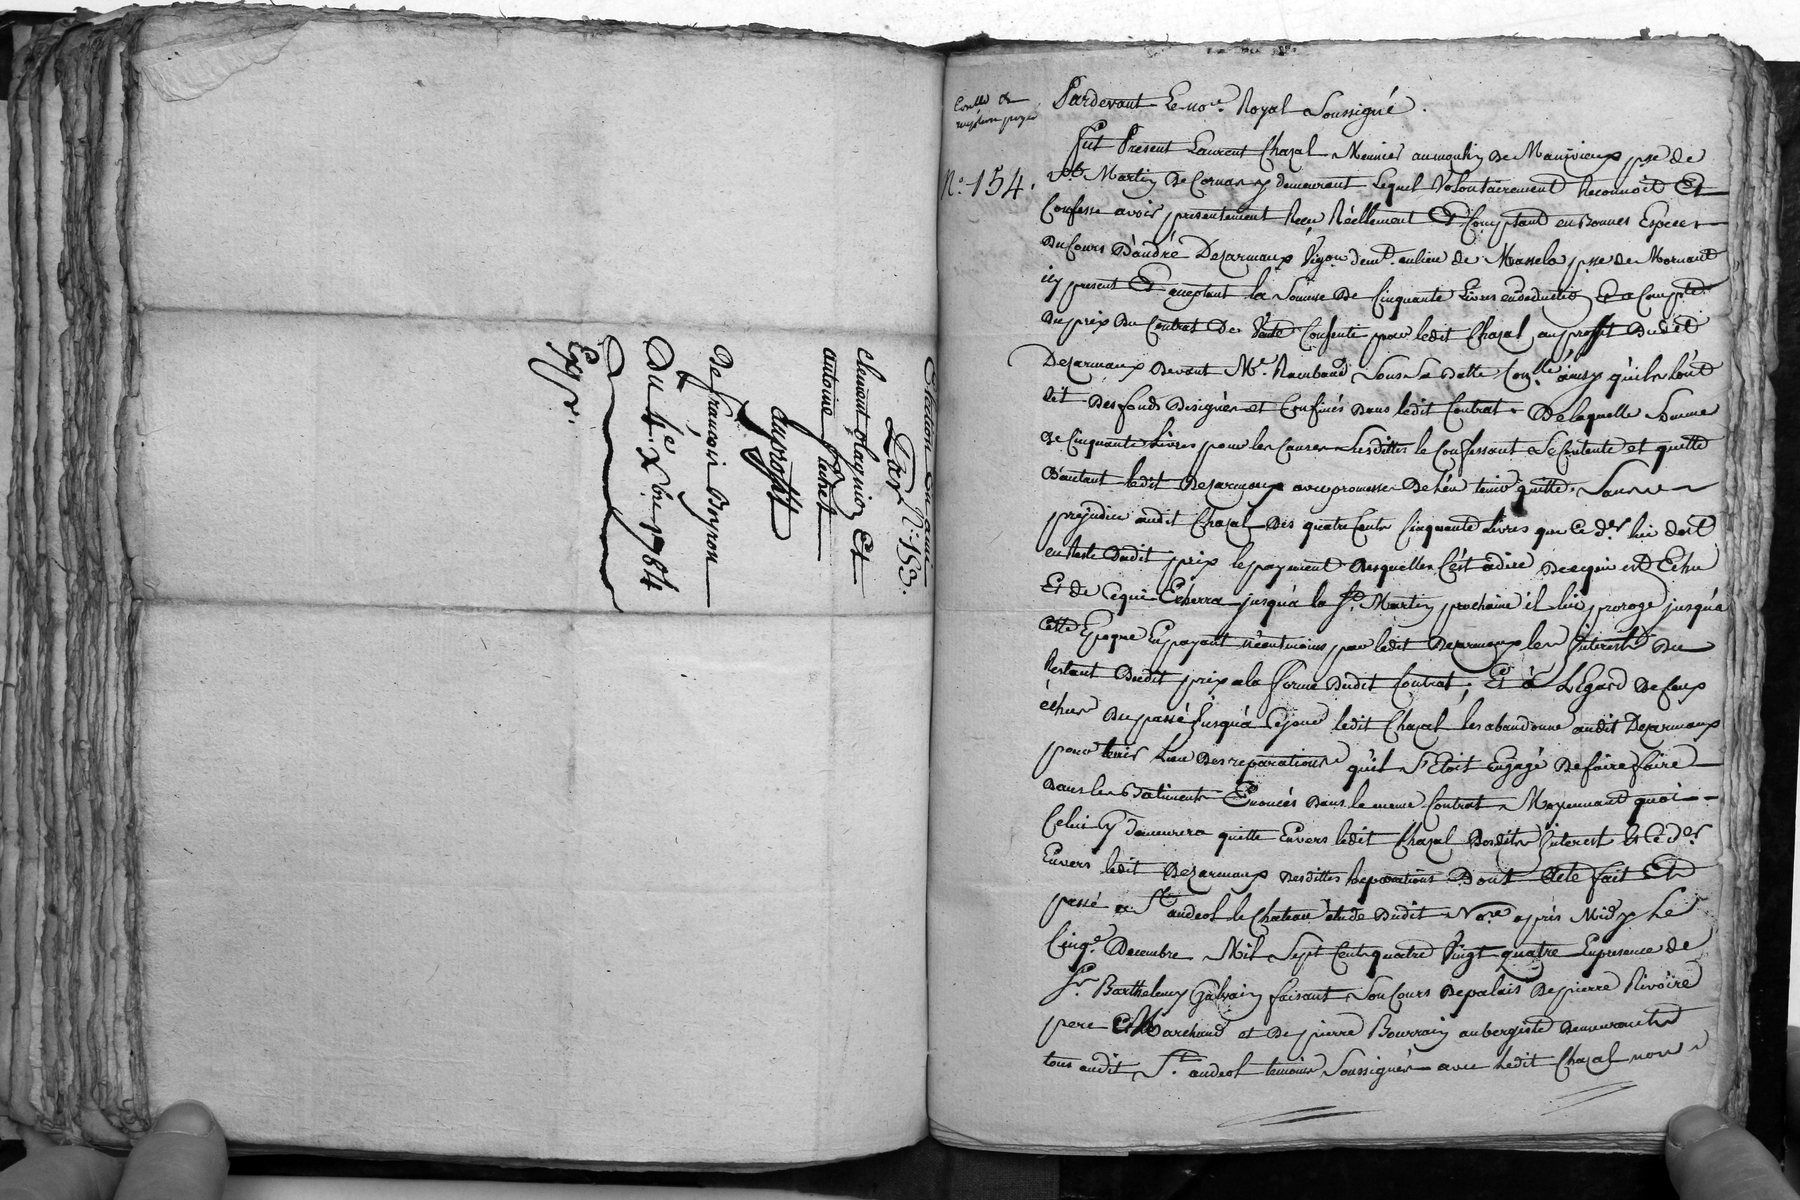 N.° 153.
clement olagnier Et
antoine
Auproffit
De françois Boyron
Du 4.e Xbre 1784
Exp.r
N.° 154.
Pardevant Le no.re Royal Soussigné
Fut Present Laurent Chazal Meunier au moulin De p.sse de
S.t Martin De Cornas y demeurant Lequel Volontairement Reconnoit Et
Confesse avoir presentement Reçu Réellement Et Comptant en Bonnes Especes
Du Cours D'andré Dezarmaux Vigon dem.t au lieu de p.sse de Mornant
icy present Et aceptant la Somme De Cinquante Livres en deduction Et a Compte
Du prix Du Contrat De Vante Consente par ledit Chazal au proffit Dudit
Dezarmaux Devant M.e Rambaud Sous Sa Datte Con.lle ainsy qu'ils l'ont
dit Des fonds Designés et Confinés Dans ledit Contrat De laquelle Somme
De Cinquante Livres pour les Causes Susdittes le Confessant Se Contente et quitte
D'autant ledit Dezarmaux avec promesse De l'en tenir quitte, Sans
prejudice audit Chazal Des quatre Cents Cinquante Livres que Ce d.er lui doit
en Reste Dudit prix le payement Desquelles C'est adire De ce qui est Echu
Et de Ce qui Echerra jusqu'a la S.t Martin prochaine il lui proroge jusqu'a
Cette Epoque En payant néantmoins par ledit Dezarmaux les Interest Du
Restant Dudit prix a la forme Dudit Contrat; Et à L'Egard De Ceux
échus Du passé Jusqu'à Cejour ledit Chazal les abandonne audit Dezarmaux
pour tenir Lieu Des reparations qu'il S'Etoit Engagé De faire faire
Dans les Batiments Enoncés Dans le meme Contrat Moyennant quoi
Celui Cy demeurera quitte Envers ledit Chazal Desdits Interest et Ce d.er
Envers ledit Dezarmaux Desdittes Reparations Dont Acte fait Et
passé a S.t andeol le Chateau étude Dudit No.re après Midy Le
Cinq.e Decembre Mil Sept Cent quatre Vingt quatre En presence de
S.r Barthelemy Galvain faisant Son Cours De palais De pierre Rivoire
pere Marchand et De pierre Bourrain aubergiste Demeurants
tous audit S.t andeol temoins Soussignés avec Ledit Chazal non